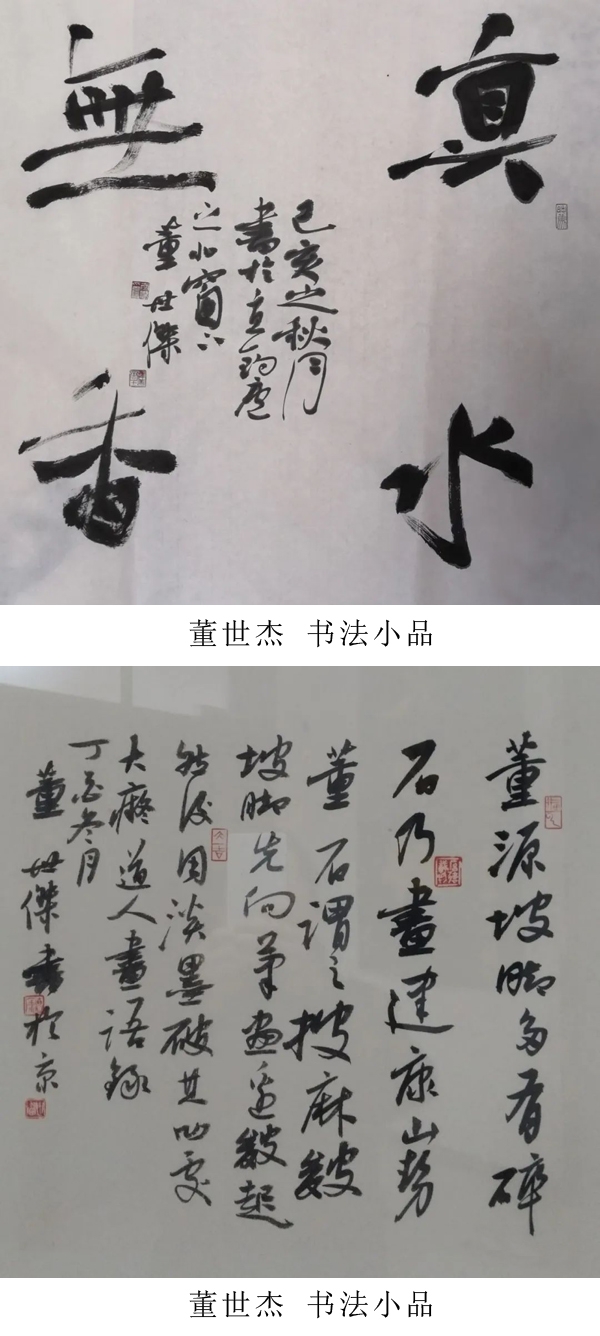 真水
無香
己亥之秋月
書於廬
之北窗下
董世傑
董世杰 书法小品
董源坡脚多有碎
石乃畫建康山勢
董石謂之披麻皴
坡脚先向筆畫邊皴起
然後用淡墨破其凹處
大癡道人畫語錄
丁酉冬月
董世傑書於京
董世杰 书法小品